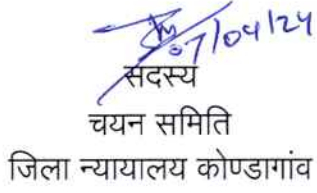 07/04/24
सदस्य
चयन समिति
जिला न्यायालय कोण्डागांव